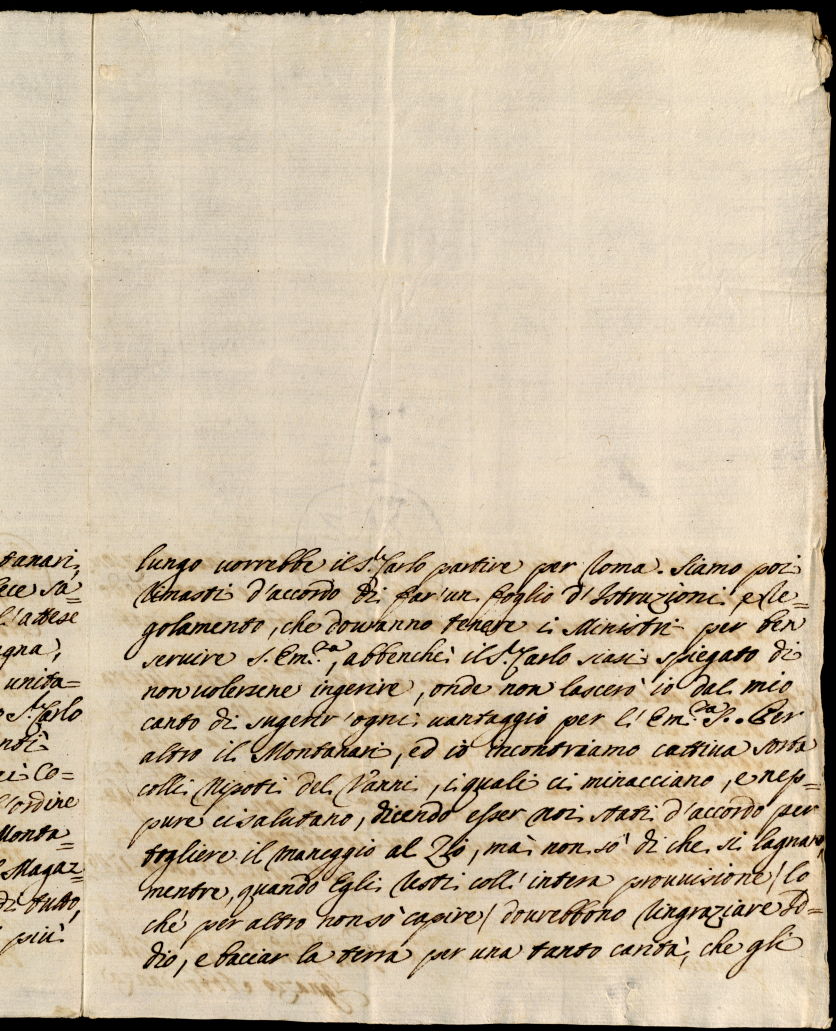 tanari,
ece sa=
l'attese
agna,
unita=
o S.r Carlo
ndi
ei Co=
l'ordine
Monta=
Magaz=
di tutto,
più
lungo vorrebbe il S.r Carlo partire per Roma. Siamo poi
rimasti d'accordo di far'un foglio d'Istruzioni, e Re=
golamento, che dovranno tenere i Ministri per ben
servire S. Em.za, abbenchè il S.r Carlo siasi spiegato di
non volersene ingerire, onde non lascerò io dal mio
canto di sugerir'ogni vantaggio per l'Em.za S. Per
altro il Montanari, ed io incontriamo cattiva sorta
colli Nipoti del Vanni, i quali ci minacciano, e nep=
pure ci salutano, dicendo esser noi stati d'accordo per
togliere il maneggio al Zio, mà non sò di che si lagnano,
mentre, quando Egli resti coll'intera provvisione / lo
ché per altro non sò capire / dovrebbono ringraziare Id=
dio, e baciar la terra per una tanto carità, che gli